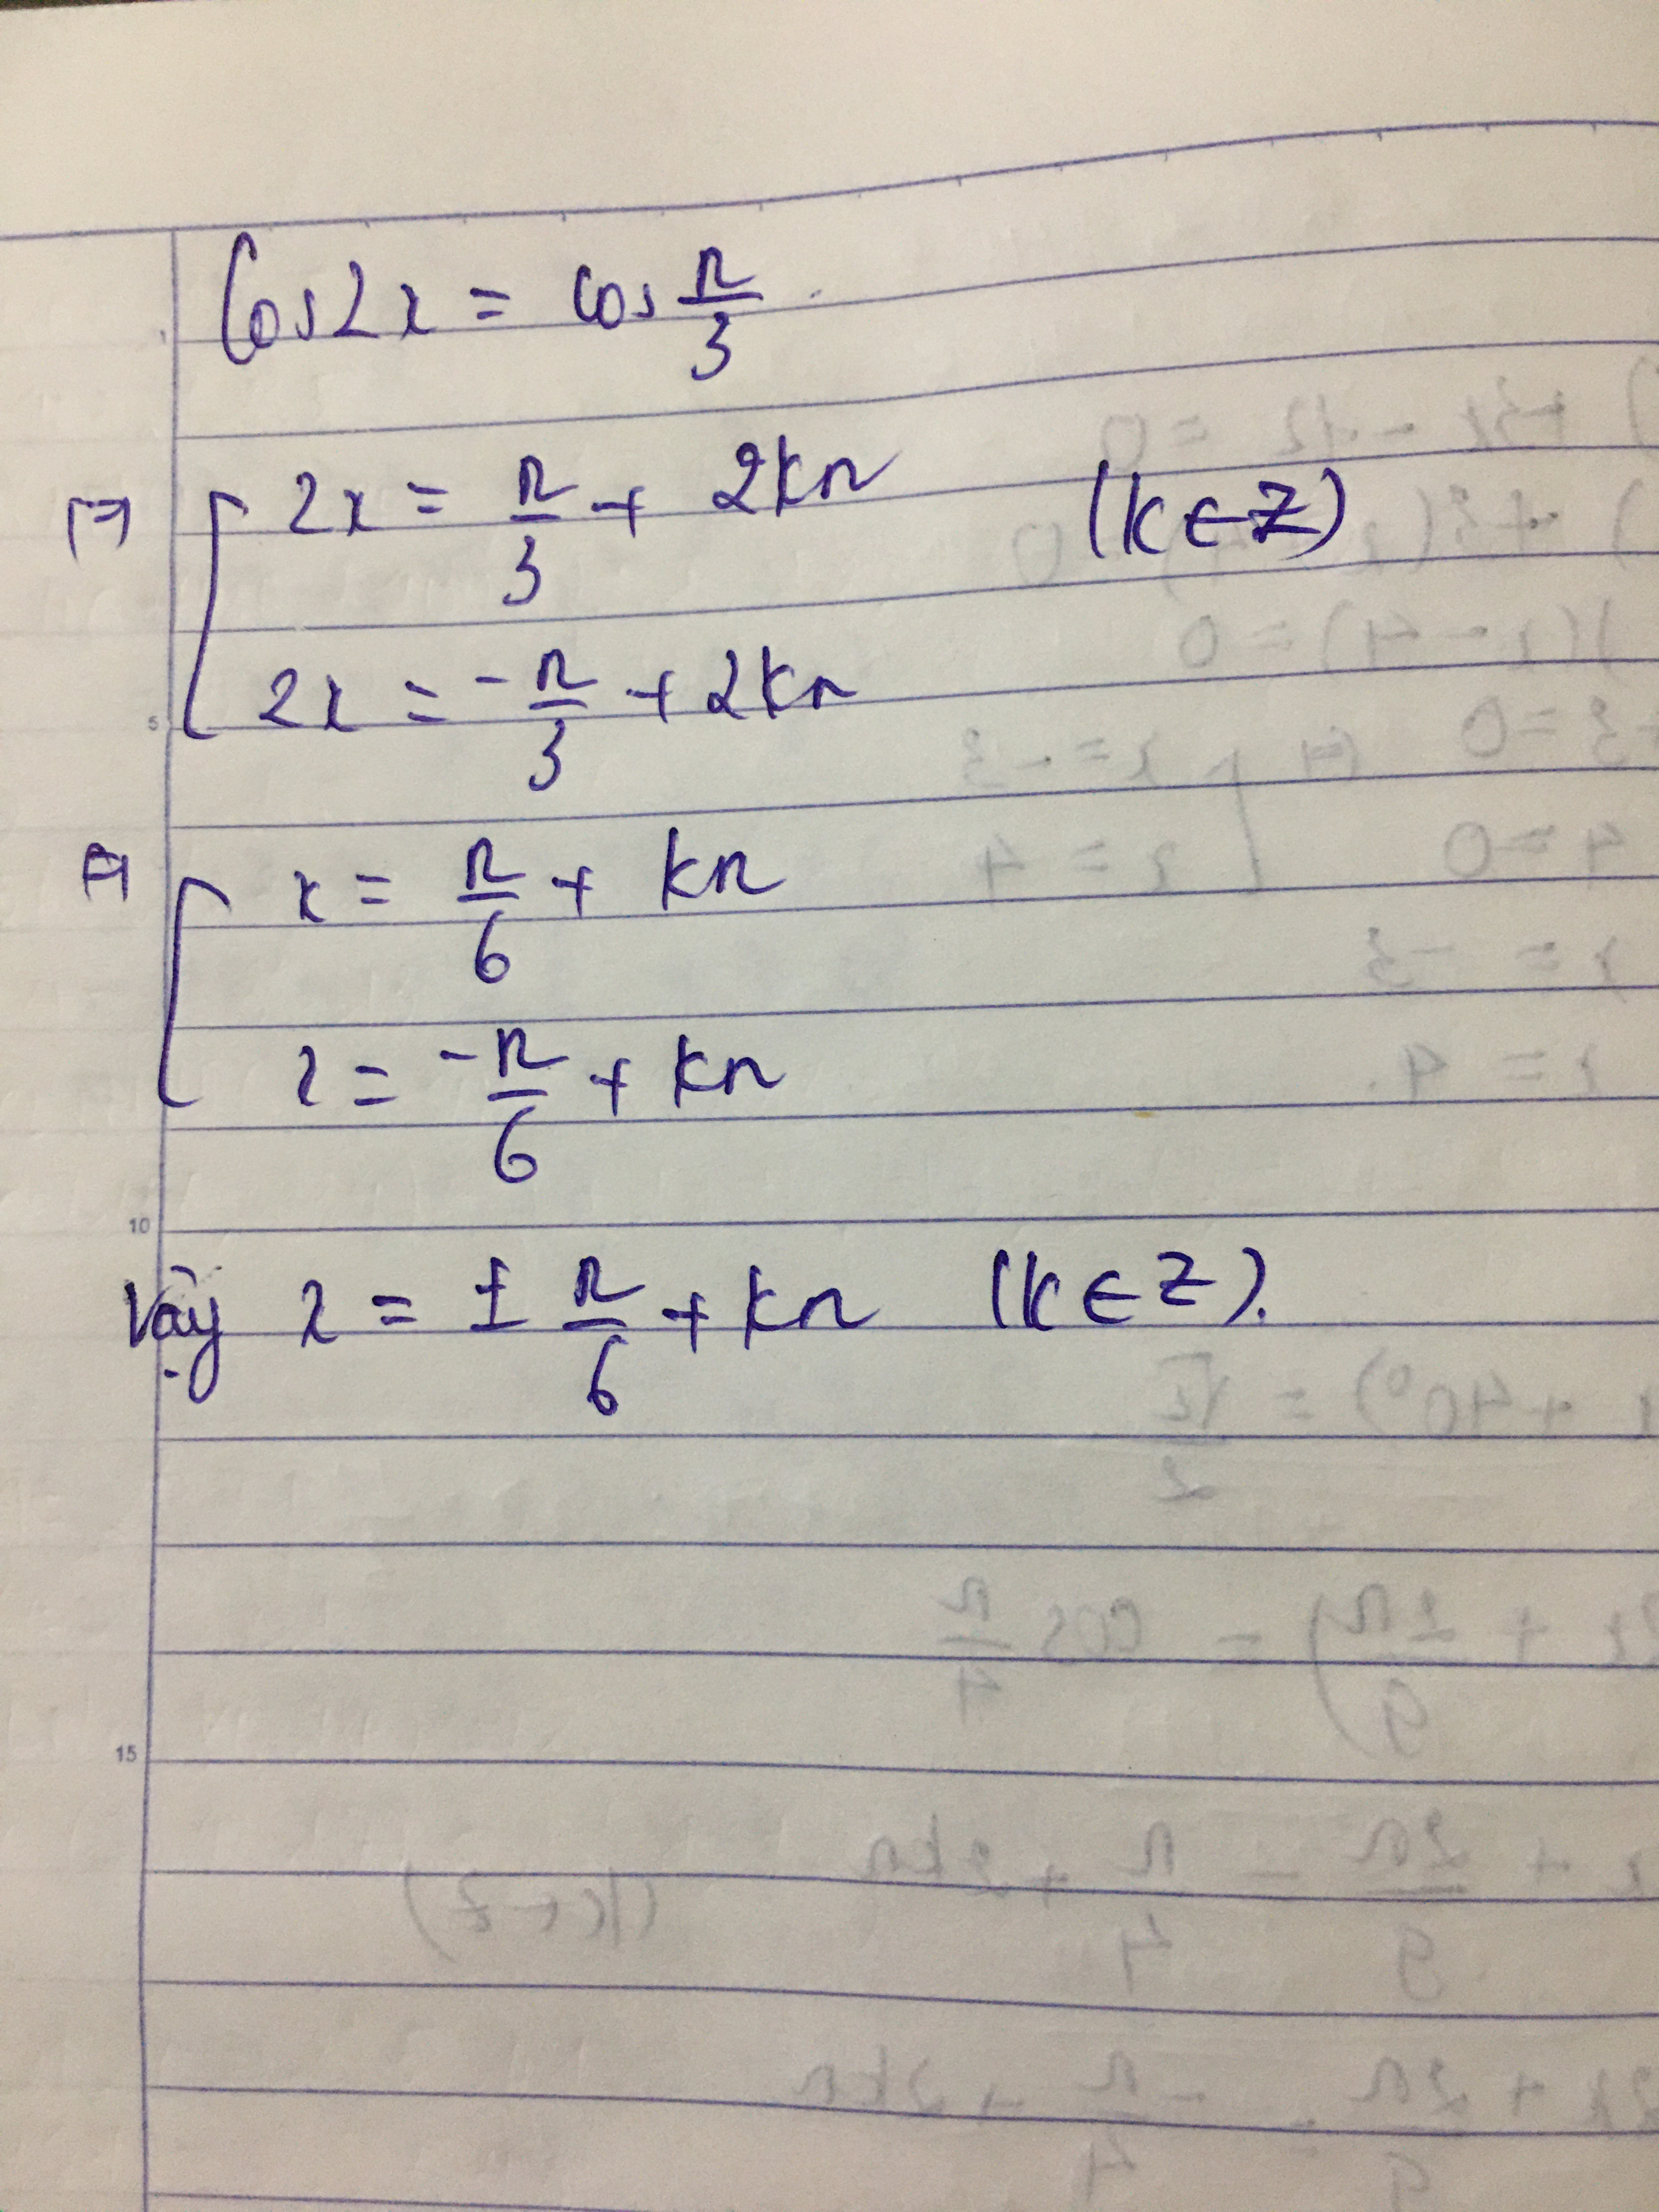 Cos2x = cos π/3
⇔ [ 2x = π/3 + 2kπ (k ∈ Z)
2x = -π/3 + 2kπ
⇔ [ x = π/6 + kπ
x = -π/6 + kπ
Vậy x = ± π/6 + kπ (k ∈ Z).
5
10
15